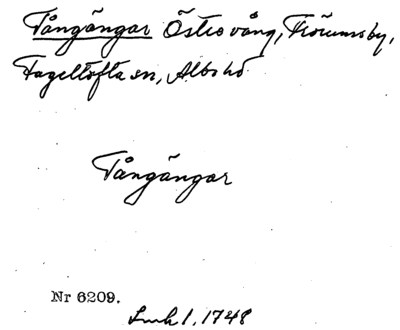 Tångängar Östra vång, Fröumsby,
Fageltofta sn, Albo hd
Tångängar
Nr 6209.
Lmk 1, 1748